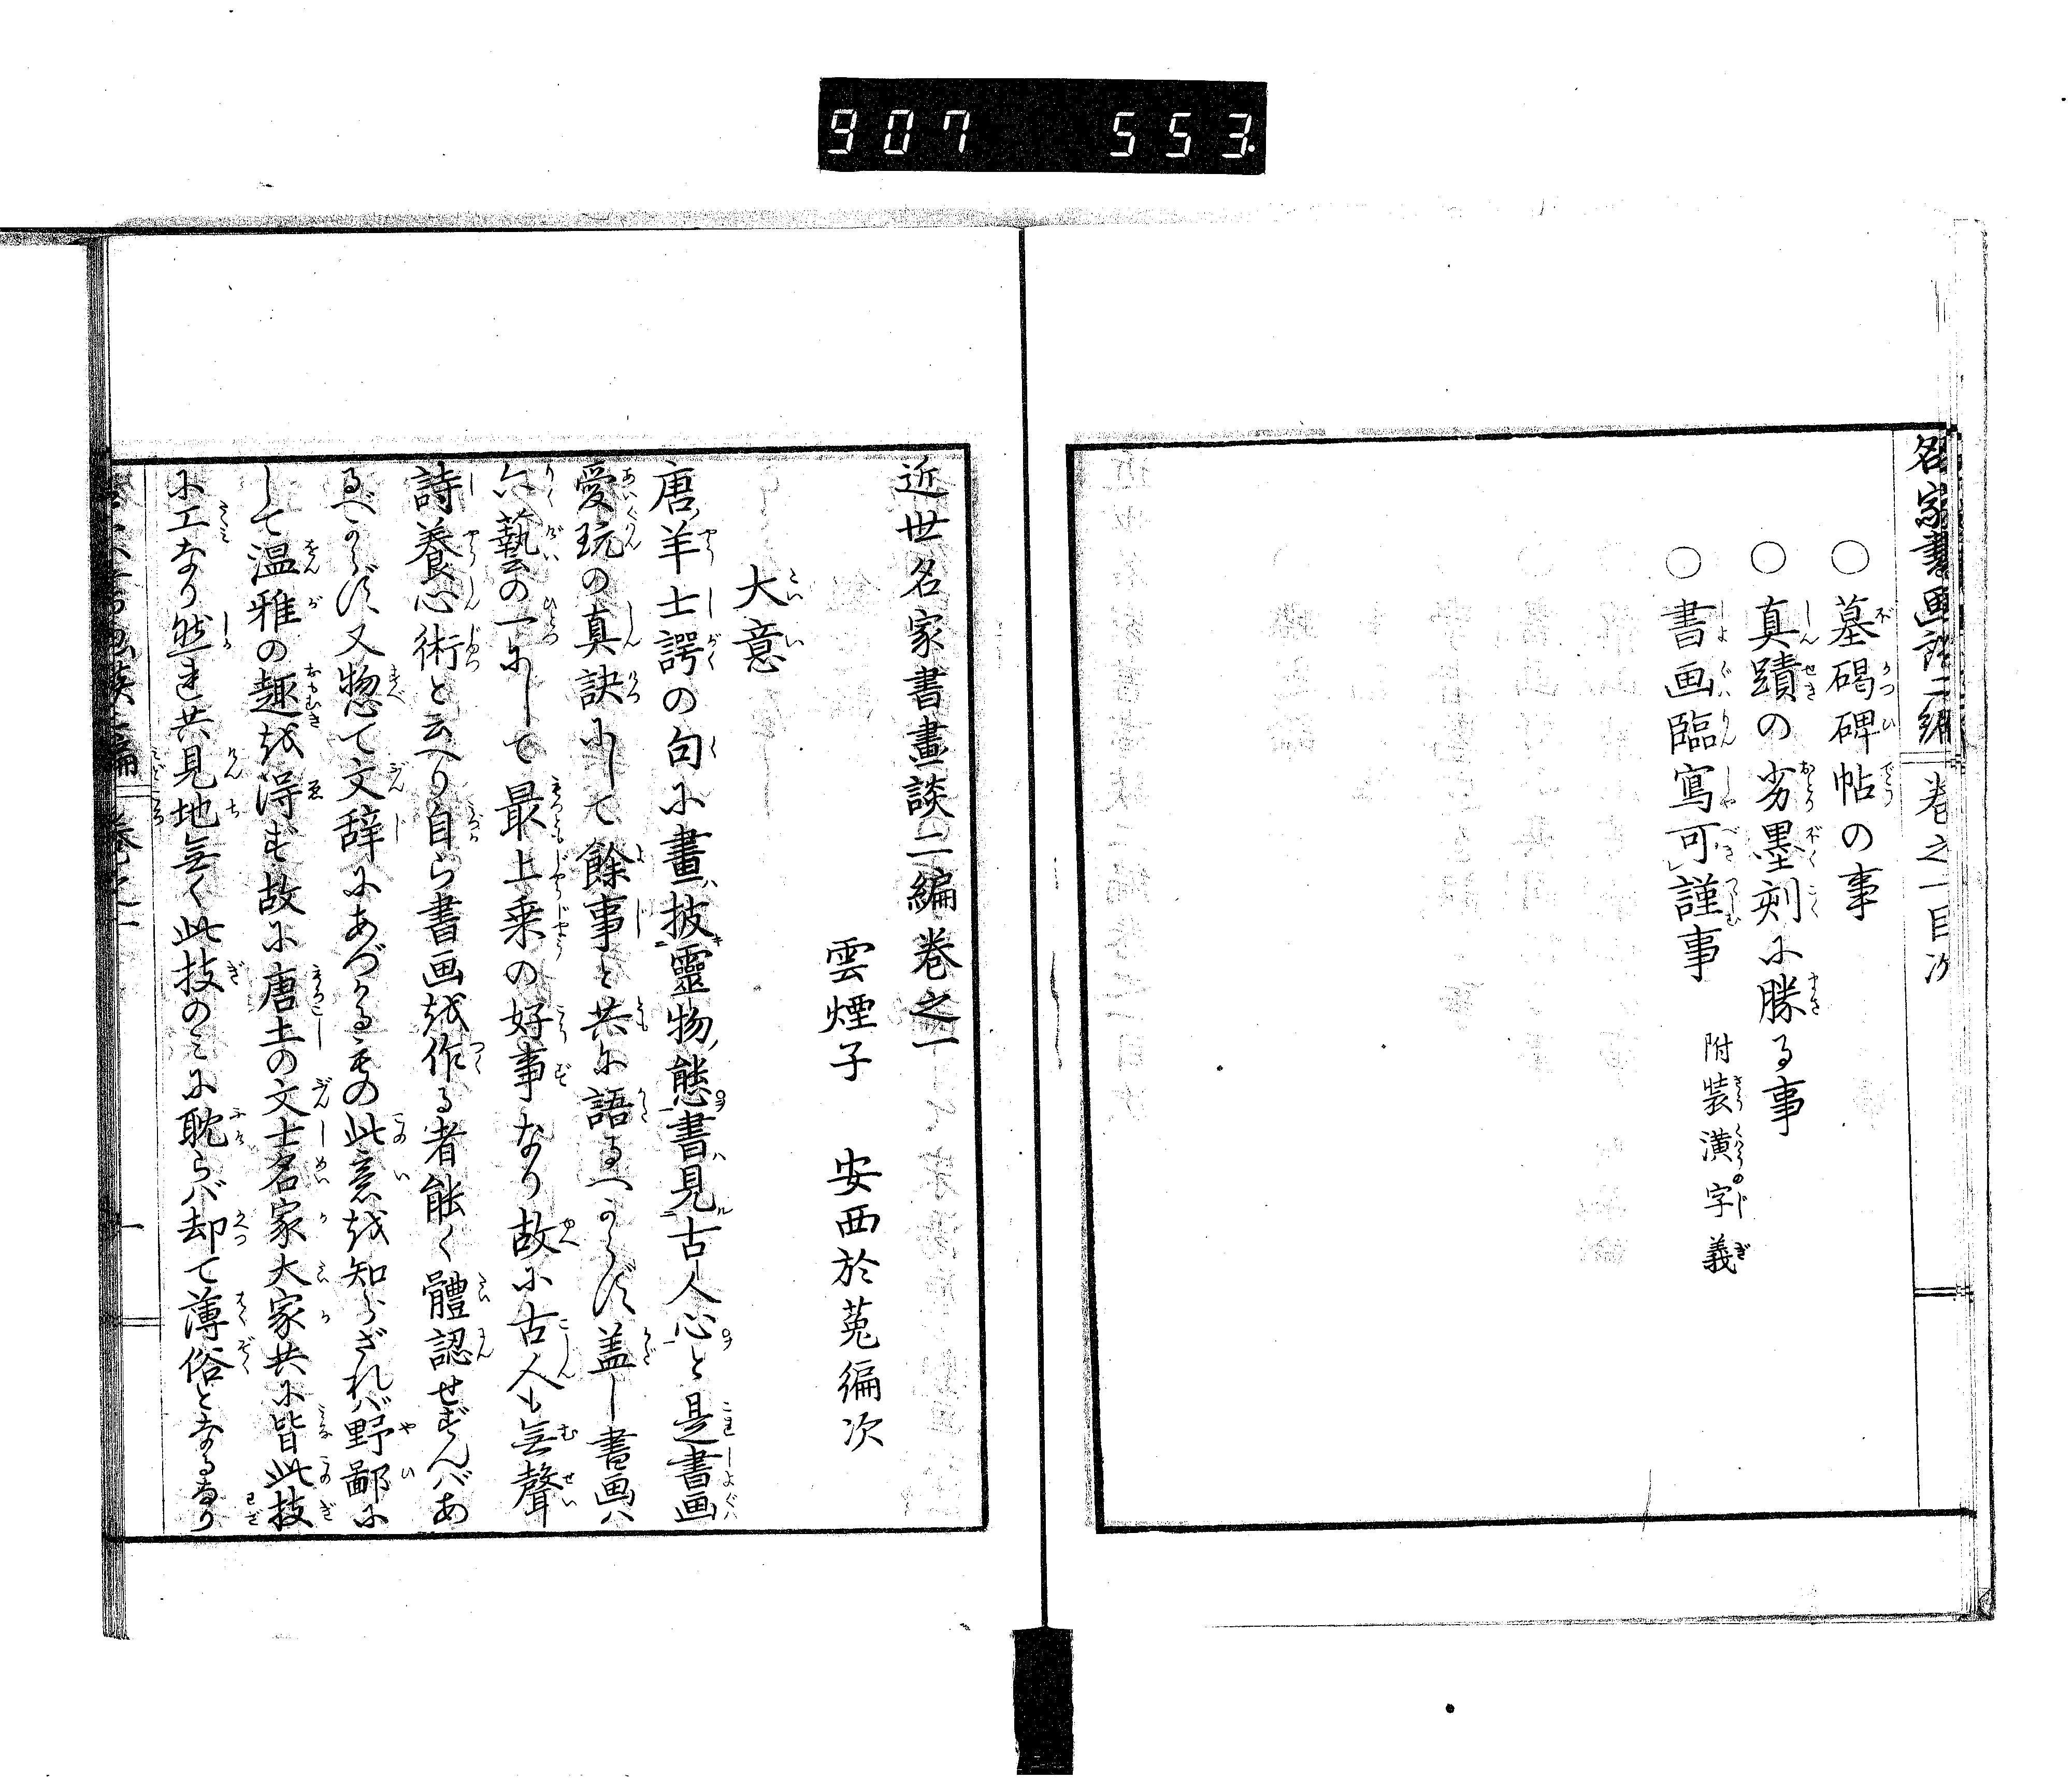 907 553
名家書画談二編 卷之一目次
〇墓碣碑帖の事
〇真蹟の劣墨刻に勝る事
〇書画臨寫可謹事 附装潢字義
近世名家書畫談二編卷之一
雲煙子 安西於菟編次
大意
唐ノ羊士諤の句に畫ハ披靈物ノ態書ハ見ル古人ノ心と是書画ハ
愛玩の真訣にして餘事と共に語るべからず盖し書画ハ
六藝の一にして最上乗の好事なり故に古人も無聲
詩養心術と云へり自ら書画を作る者能く體認せずんバあ
るべからず又惣て文辞にあづかるもの此意を知らざれバ野鄙に
して温雅の趣を得ず故に唐土の文士名家大家共に皆此技
に工なり然れ共見地無く此技のみに耽らバ却て薄俗となるなり